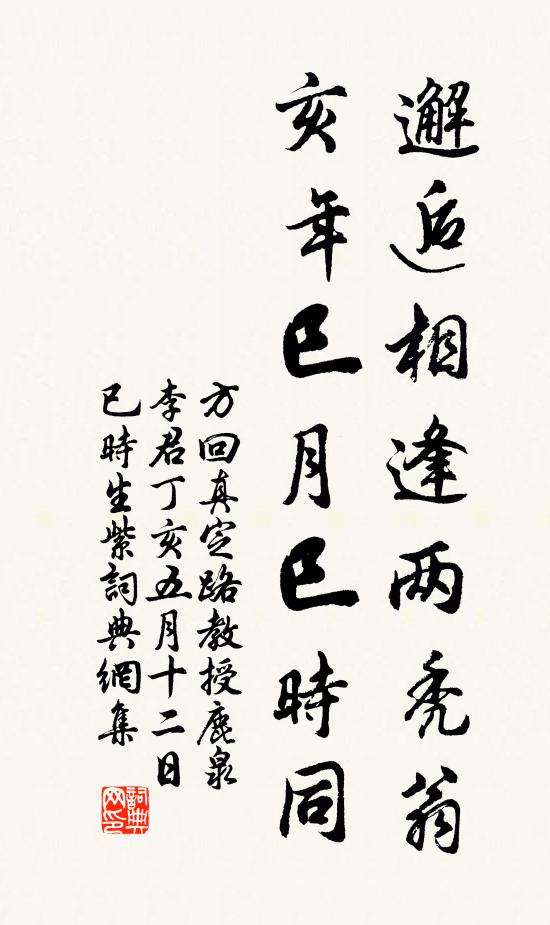 邂逅相逢两秃翁
亥年巳月巳時同
方回真定路教授鹿泉
李君丁亥五月十二日
巳時生紫詞典網集
詞典网印